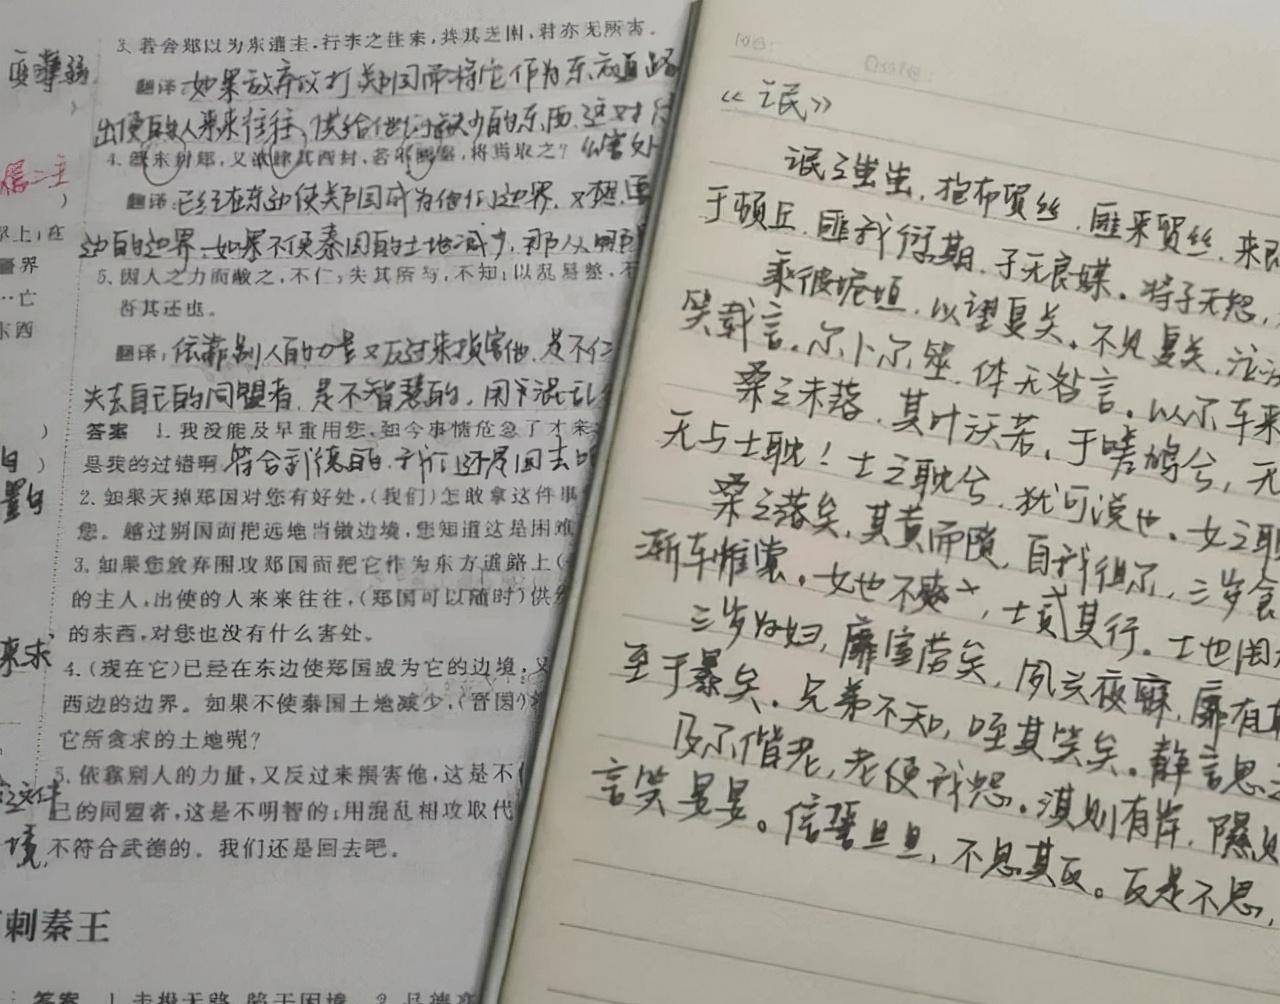 3. 若舍郑以为东道主,行李之往来,共其乏困,君亦无所害。
翻译:如果放弃攻打郑国而将它作为东方道路
出使的人来来往往,供给他们缺少的东西,这对
4. 既东封郑,又欲肆其西封,若不阙秦,将焉取之?
翻译:已经在东边使郑国成为他们边界,又想
边的边界,如果不使秦国的土地减少,那从
5. 因人之力而敝之,不仁;失其所与,不知;以乱易整,不
吾其还也。
翻译:依靠别人的力量又反过来损害他,是不仁
失去自己的同盟者,是不智慧的,用混乱
答案 1. 我没能及早重用您,如今事情危急了才来
是我的过错啊 符合武德的,我们还是回去吧
2. 如果灭掉郑国对您有好处,(我们)怎敢拿这件事
您。越过别国而把远地当做边境,您知道这是困难
3. 如果您放弃围攻郑国而把它作为东方道路上(
的主人,出使的人来来往往,(郑国可以随时)供给
的东西,对您也没有什么害处。
4. (现在它)已经在东边使郑国成为它的边境,又
西边的边界。如果不使秦国土地减少,(晋国)
它所贪求的土地呢?
5. 依靠别人的力量,又反过来损害他,这是不
己的同盟者,这是不明智的;用混乱相攻取代
不符合武德的。我们还是回去吧。
刺秦王
答案 1. 走投无路,陷于困境。 2.
界上;在
晋界
…亡
东西
信二主
来求
境,
《氓》
氓之蚩蚩,抱布贸丝,匪来贸丝,来即
于顿丘,匪我愆期,子无良媒。将子无怒,
乘彼垝垣,以望复关。不见复关,泣
笑载言。尔卜尔筮,体无咎言。以尔车来
桑之未落,其叶沃若,于嗟鸠兮,无
无与士耽!士之耽兮,犹可说也。女之耽
桑之落矣,其黄而陨,自我徂尔,三岁食
渐车帷裳。女也不爽,士贰其行。士也罔
三岁为妇,靡室劳矣,夙兴夜寐,靡有
至于暴矣。兄弟不知,咥其笑矣。静言思之
及尔偕老,老使我怨。淇则有岸,隰则
言笑晏晏。信誓旦旦,不思其反。反是不思,